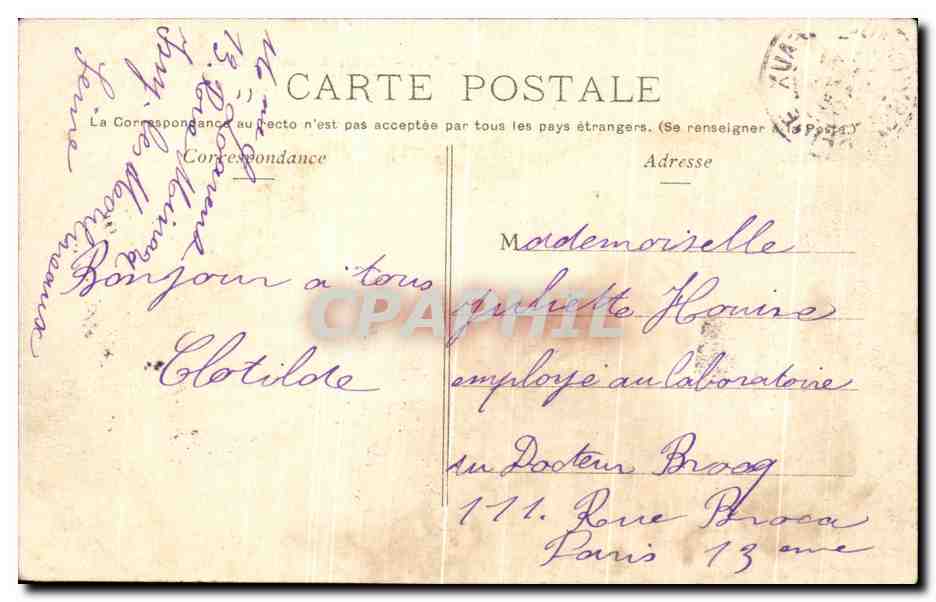 CARTE POSTALE
La Correspondance au recto n'est pas acceptée par tous les pays étrangers. (Se renseigner à la Poste.)
Correspondance
13. Rue Minard
Ivry. les Moulineaux
Seine
Bonjour à tous
Clotilde
Adresse
Mademoiselle
Juliette Houise
employé au laboratoire
du Docteur Brocq
111. Rue Broca
Paris 13 eme
CPAPHIL